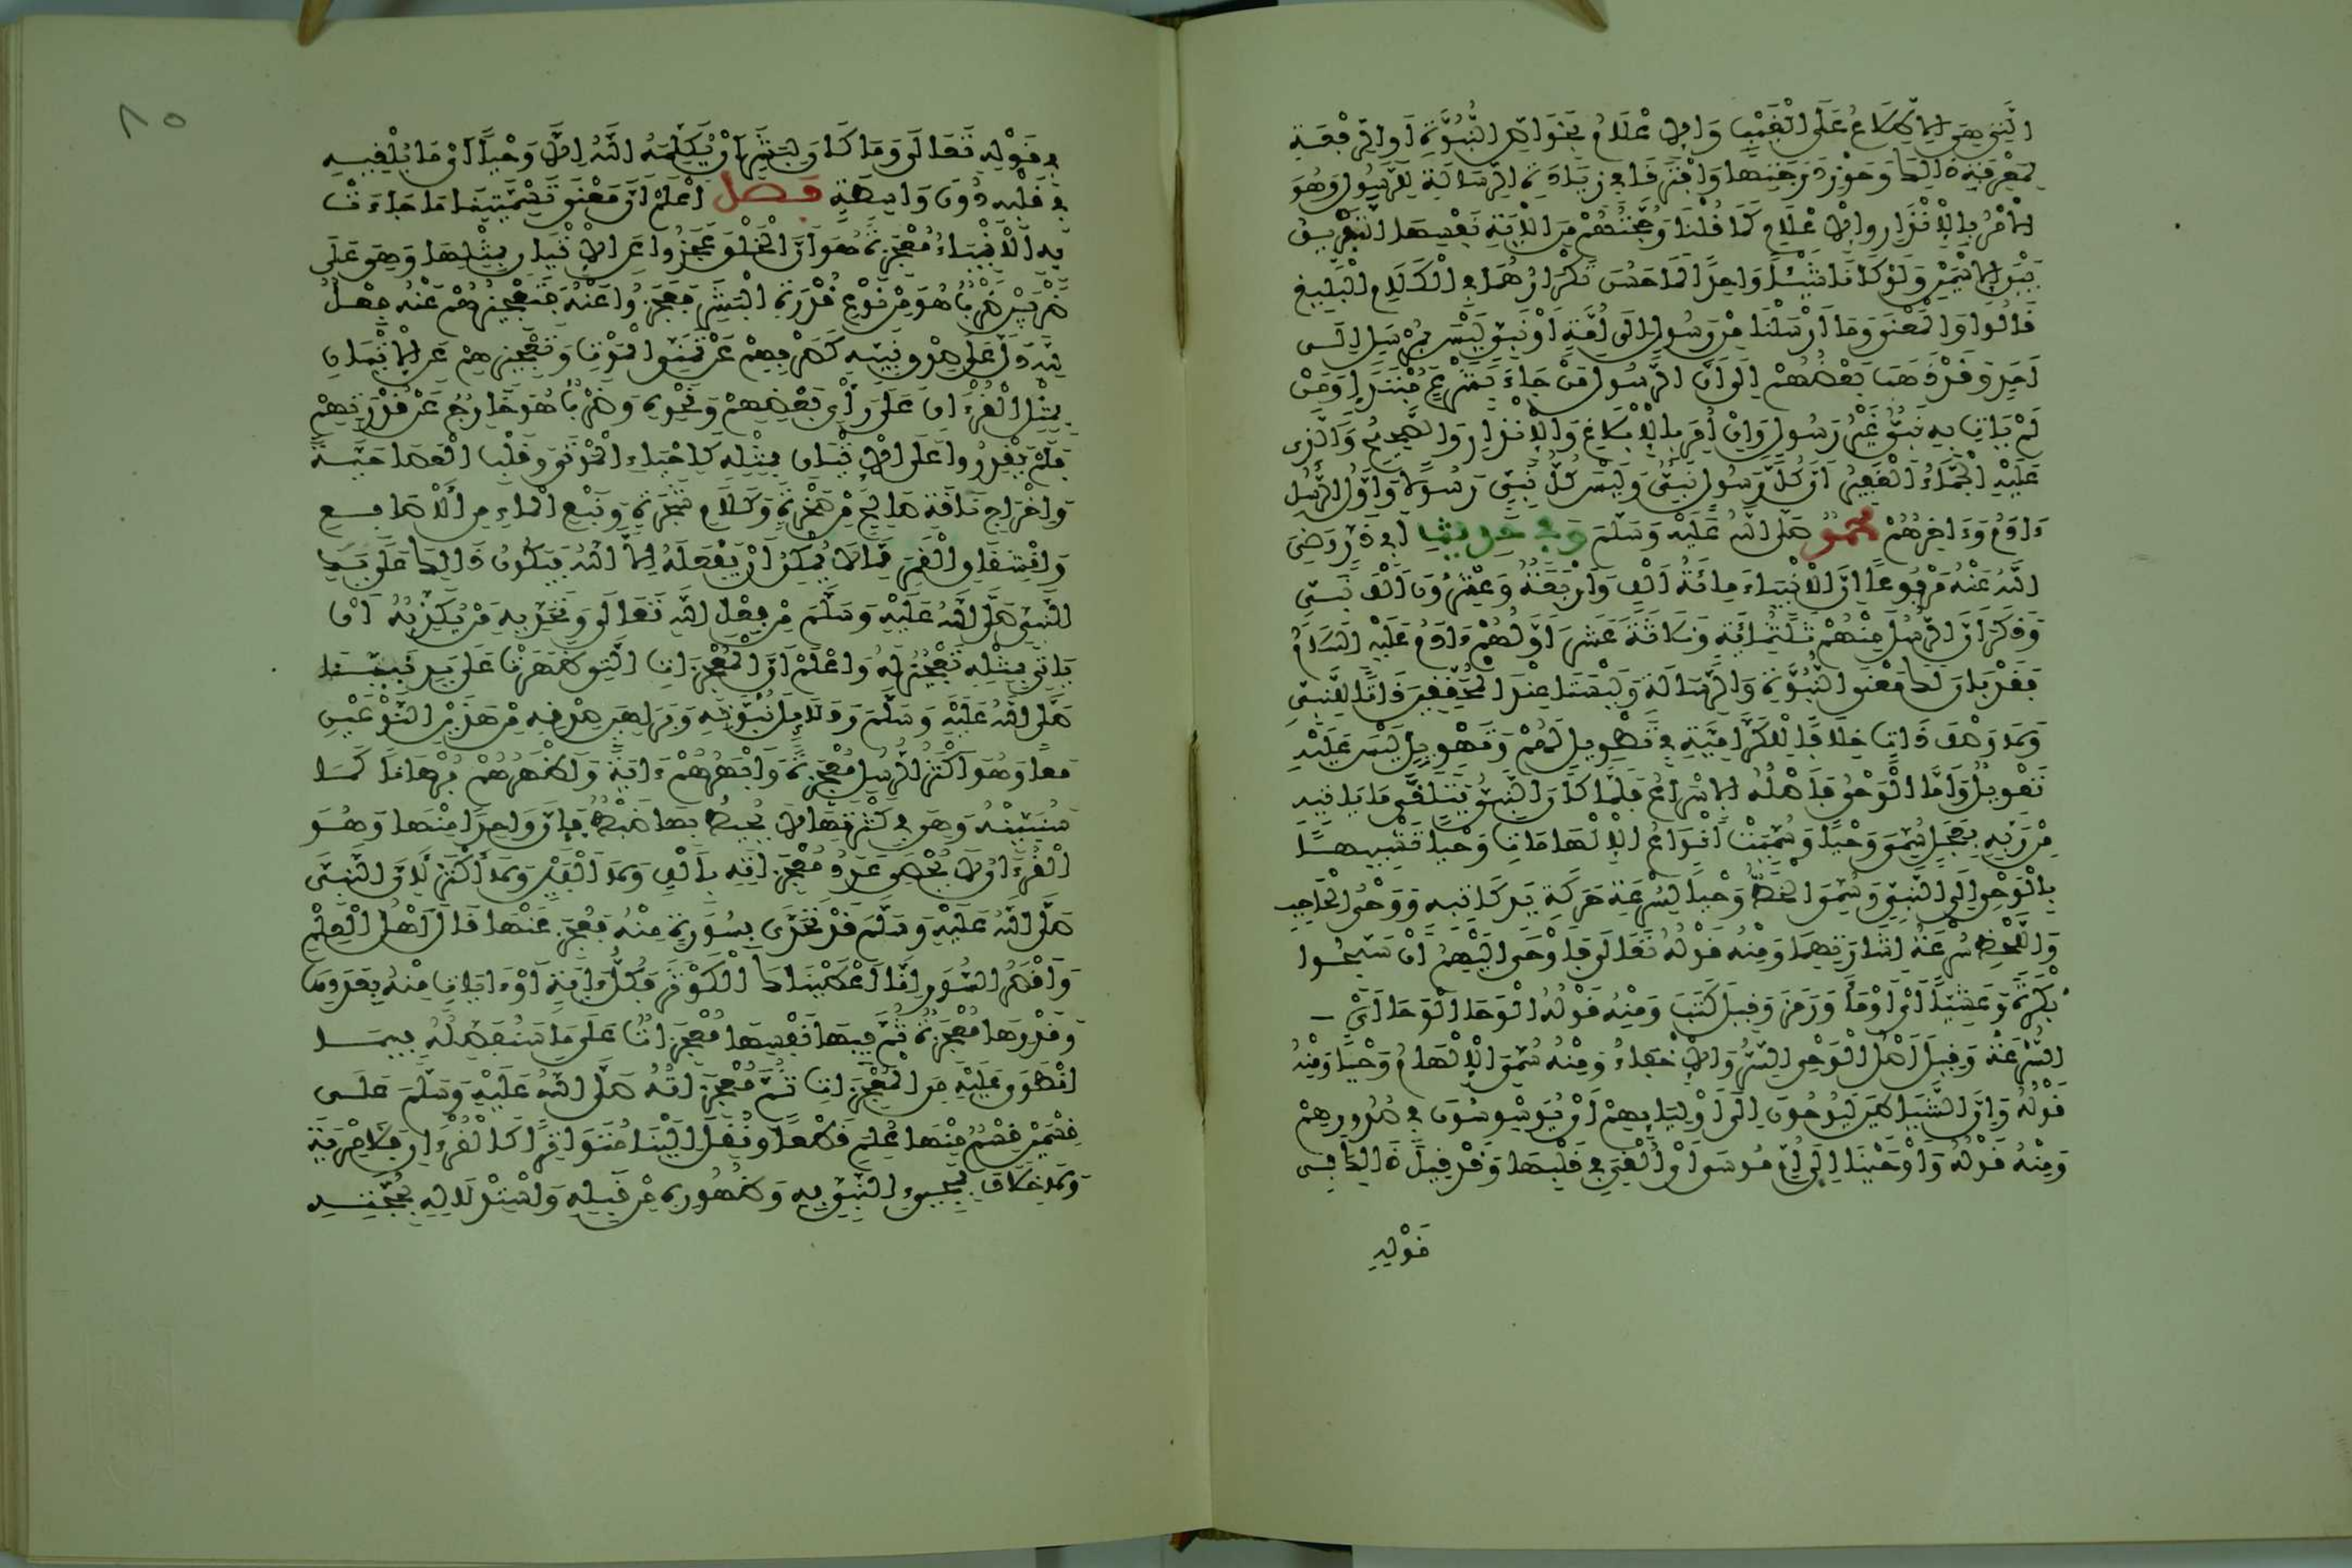 التي هي الاطلاع على الغيب والاعلام بخواص النبوة او الرفعة
لمعرفة ذالك وحوز درجتها وافترقا في زيادة الرسالة للرسول وهو
الامر بالانذار والاعلام كما قلنا وحجتهم من الاية نفسها التفريق
بين الاسمين ولو كانا شيئا واحدا لما حسن تكرارهما في الكلام البليغ
قالوا والمعنى وما ارسلنا من رسول الى امة او نبي ليس بمرسل الى
احد وقد ذهب بعضهم الى ان الرسول من جاء بشرع مبتدا ومن
لم يات به نبي غير رسول وان امر بالابلاغ والانذار والصحيح والذي
عليه الجماء الغفير ان كل رسول نبي وليس كل نبي رسولا واول الرسل
ءادم وءاخرهم محمد صلى الله عليه وسلم وفي حديث ابي ذر رضي
الله عنه مرفوعا ان الانبياء مائة الف واربعة وعشرون الف نبي
وذكر ان الرسل منهم ثلثمائة وثلاثة عشر اولهم ءادم عليه السلام
فقد بان لك معنى النبوة والرسالة وليستا عند المحققين ذاتا للنبي
ولا وصف ذات خلافا للكرامية في تطويل لهم وتهويل ليس عليه
تعويل واما الوحي فاصله الاسراع فلما كان النبي يتلقى ما ياتيه
من ربه بعجل سمي وحيا وسميت انواع الالهامات وحيا تشبيها
بالوحي الى النبي وسمي الخط وحيا لسرعة حركة يد كاتبه ووحي الحاجب
واللحظ سرعة اشارتهما ومنه قوله تعالى فاوحى اليهم ان سبحوا
بكرة وعشيا اي اومأ ورمز وقيل كتب ومنه قوله الوحا الوحا اي
السرعة وقيل اصل الوحي السر والاخفاء ومنه سمي الالهام وحيا ومنه
قوله وان الشياطين ليوحون الى اوليايهم اي يوسوسون في صدورهم
ومنه قوله واوحينا الى ام موسى اي القي في قلبها وقد قيل ذالك في
قوله
١٥
في قوله تعالى وما كان لبشر ان يكلمه الله الا وحيا اي ما يلقيه
في قلبه دون واسطة فصل اعلم ان معنى تسميتنا ما جاءت
به الانبياء معجزة هو ان الخلق عجزوا عن الاتيان بمثلها وهي على
ضربين ضرب هو من نوع قدرة البشر فعجزوا عنه فتعجيزهم عنه فعل
لله دل على صدق نبيه كصرفهم عن تمني الموت وتعجيزهم عن الاتيان
بمثل القرءان على راي بعضهم ونحوه وضرب هو خارج عن قدرتهم
فلم يقدروا على الاتيان بمثله كاحياء الموتى وقلب العصا حية
واخراج ناقة صالح من صخرة وكلام شجرة ونبع الماء من الاصابع
وانشقاق القمر مما لا يمكن ان يفعله الا الله فيكون ذالك على يد
النبي صلى الله عليه وسلم من فعل الله تعالى وتحديه من يكذبه ان
ياتي بمثله تعجيز له واعلم ان المعجزات التي ظهرت على يد نبينا
صلى الله عليه وسلم ودلايل نبوته وبراهين صدقه من هذين النوعين
معا وهو اكثر الرسل معجزة وابهرهم ءاية واظهرهم برهانا كما
سنبينه وهي في كثرتها لا يحيط بها ضبط فان واحدا منها وهو
القرءان لا يحصى عدد معجزاته بالف ولا الفين ولا اكثر لان النبي
صلى الله عليه وسلم قد تحدى بسورة منه فعجز عنها قال اهل العلم
واقصر السور انا اعطيناك الكوثر فكل ءاية او ءايات منه بعددها
وقدرها معجزة ثم فيها نفسها معجزات على ما سنفصله فيما
انطوى عليه من المعجزات ثم معجزاته صلى الله عليه وسلم على
قسمين قسم منها علم قطعا ونقل الينا متواترا كالقرءان فلا مرية
ولا خلاف بمجيء النبي به وظهوره من قبله واستدلاله بحجته